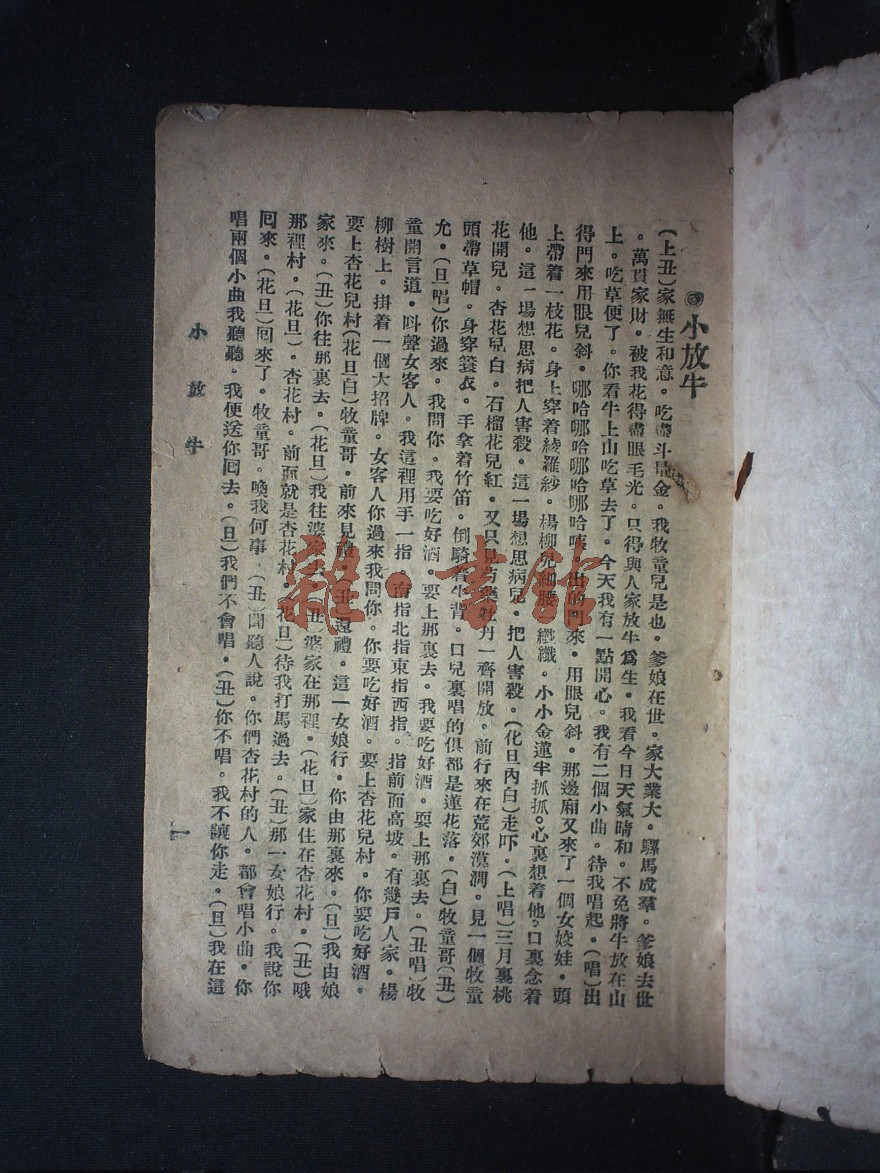 小放牛
(上丑)家無生和意。吃盡斗量金。我牧童兒是也。爹娘在世。家大業大。騾馬成羣。爹娘去世
。萬貫家財。被我花得盡眼毛光。只得與人家放牛爲生。我看今日天氣晴和。不免將牛放在山
上。吃草便了。你看牛上山吃草去了。今天我有一點開心。我有二個小曲。待我唱起。(唱)出
得門來用眼兒斜。哪哈哪哈哪哈哪哈咦。出的門來。用眼兒斜。那邊廂又來了一個女姣娃。頭
上帶着一枝花。身上穿着綾羅紗。楊柳兒細腰 纖纖。小小金蓮半抓抓。心裏想着他。口裏念着
他。這一場想思病把人害殺。這一場想思病兒。把人害殺。(化旦內白)走吓。(上唱)三月裏桃
花開兒。杏花兒白。石榴花兒紅。又只見芍藥牡丹一齊開放。前行來在荒郊漠澗。見一個牧童
頭帶草帽。身穿簑衣。手拿着竹笛。倒騎着牛背。口兒裏唱的俱都是蓮花落。(白)牧童哥(丑)
允。(旦唱)你過來。我問你。我要吃好酒。要上那裏去。我要吃好酒。要上那裏去。(丑唱)牧
童開言道。呌聲女客人。我這裡用手一指 南指北指東指西指。指前面高坡。有幾戶人家。楊
柳樹上。掛着一個大招牌。女客人你過來我問你。你要吃好酒。要上杏花兒村。你要吃好酒。
要上杏花兒村(花旦白)牧童哥。前來見禮。(丑)還禮。這一女娘行。你由那裏來。(旦)我由娘
家來。(丑)你往那裏去。(花旦)我往婆家去。(丑)婆家在那裡。(花旦)家住在杏花村。(丑)哦
那裡村。(花旦)。杏花村。前面就是杏花村。(花旦)待我打馬過去。(丑)那一女娘行。我說你
囘來。(花旦)囘來了。牧童哥。喚我何事。(丑)聞聽人說。你們杏花村的人。都會唱小曲。你
唱兩個小曲我聽聽。我便送你囘去。(旦)我們不會唱。(丑)你不唱。我不讓你走。(旦)我在這
小放牛
一
雜·書館